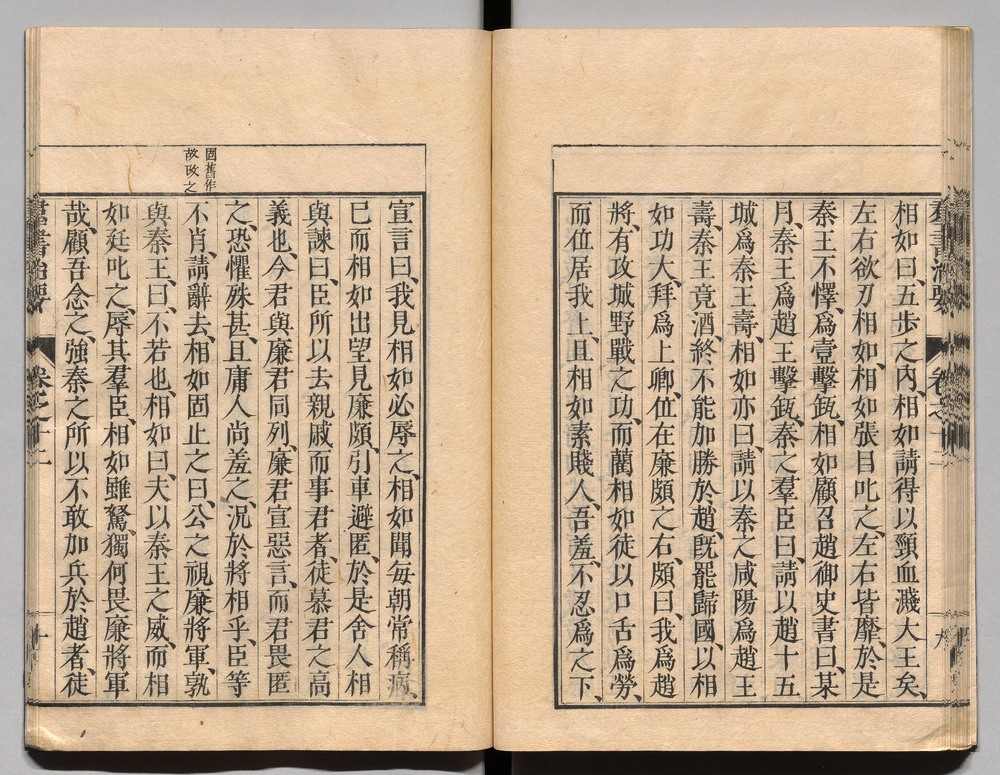 相如曰、五步之內、相如請得以頸血濺大王矣、
左右欲刃相如、相如張目叱之、左右皆靡、於是
秦王不懌、爲壹擊缻、相如顧召趙御史書曰、某
月、秦王爲趙王擊缻、秦之羣臣曰、請以趙十五
城爲秦王壽、相如亦曰、請以秦之咸陽爲趙王
壽、秦王竟酒、終不能加勝於趙、旣罷歸國、以相
如功大、拜爲上卿、位在廉頗之右、頗曰、我爲趙
將、有攻城野戰之功、而藺相如徒以口舌爲勞、
而位居我上、且相如素賤人、吾羞、不忍爲之下、
九
固舊作
故改之
宣言曰、我見相如必辱之、相如聞每朝常稱病、
已而相如出望見廉頗、引車避匿、於是舍人相
與諫曰、臣所以去親戚而事君者、徒慕君之高
義也、今君與廉君同列、廉君宣惡言、而君畏匿
之、恐懼殊甚、且庸人尚羞之、況於將相乎、臣等
不肖、請辭去、相如固止之曰、公之視廉將軍、孰
與秦王、曰、不若也、相如曰、夫以秦王之威、而相
如廷叱之、辱其羣臣、相如雖駑、獨何畏廉將軍
哉、顧吾念之、強秦之所以不敢加兵於趙者、徒
羣書治要 卷之十二 十